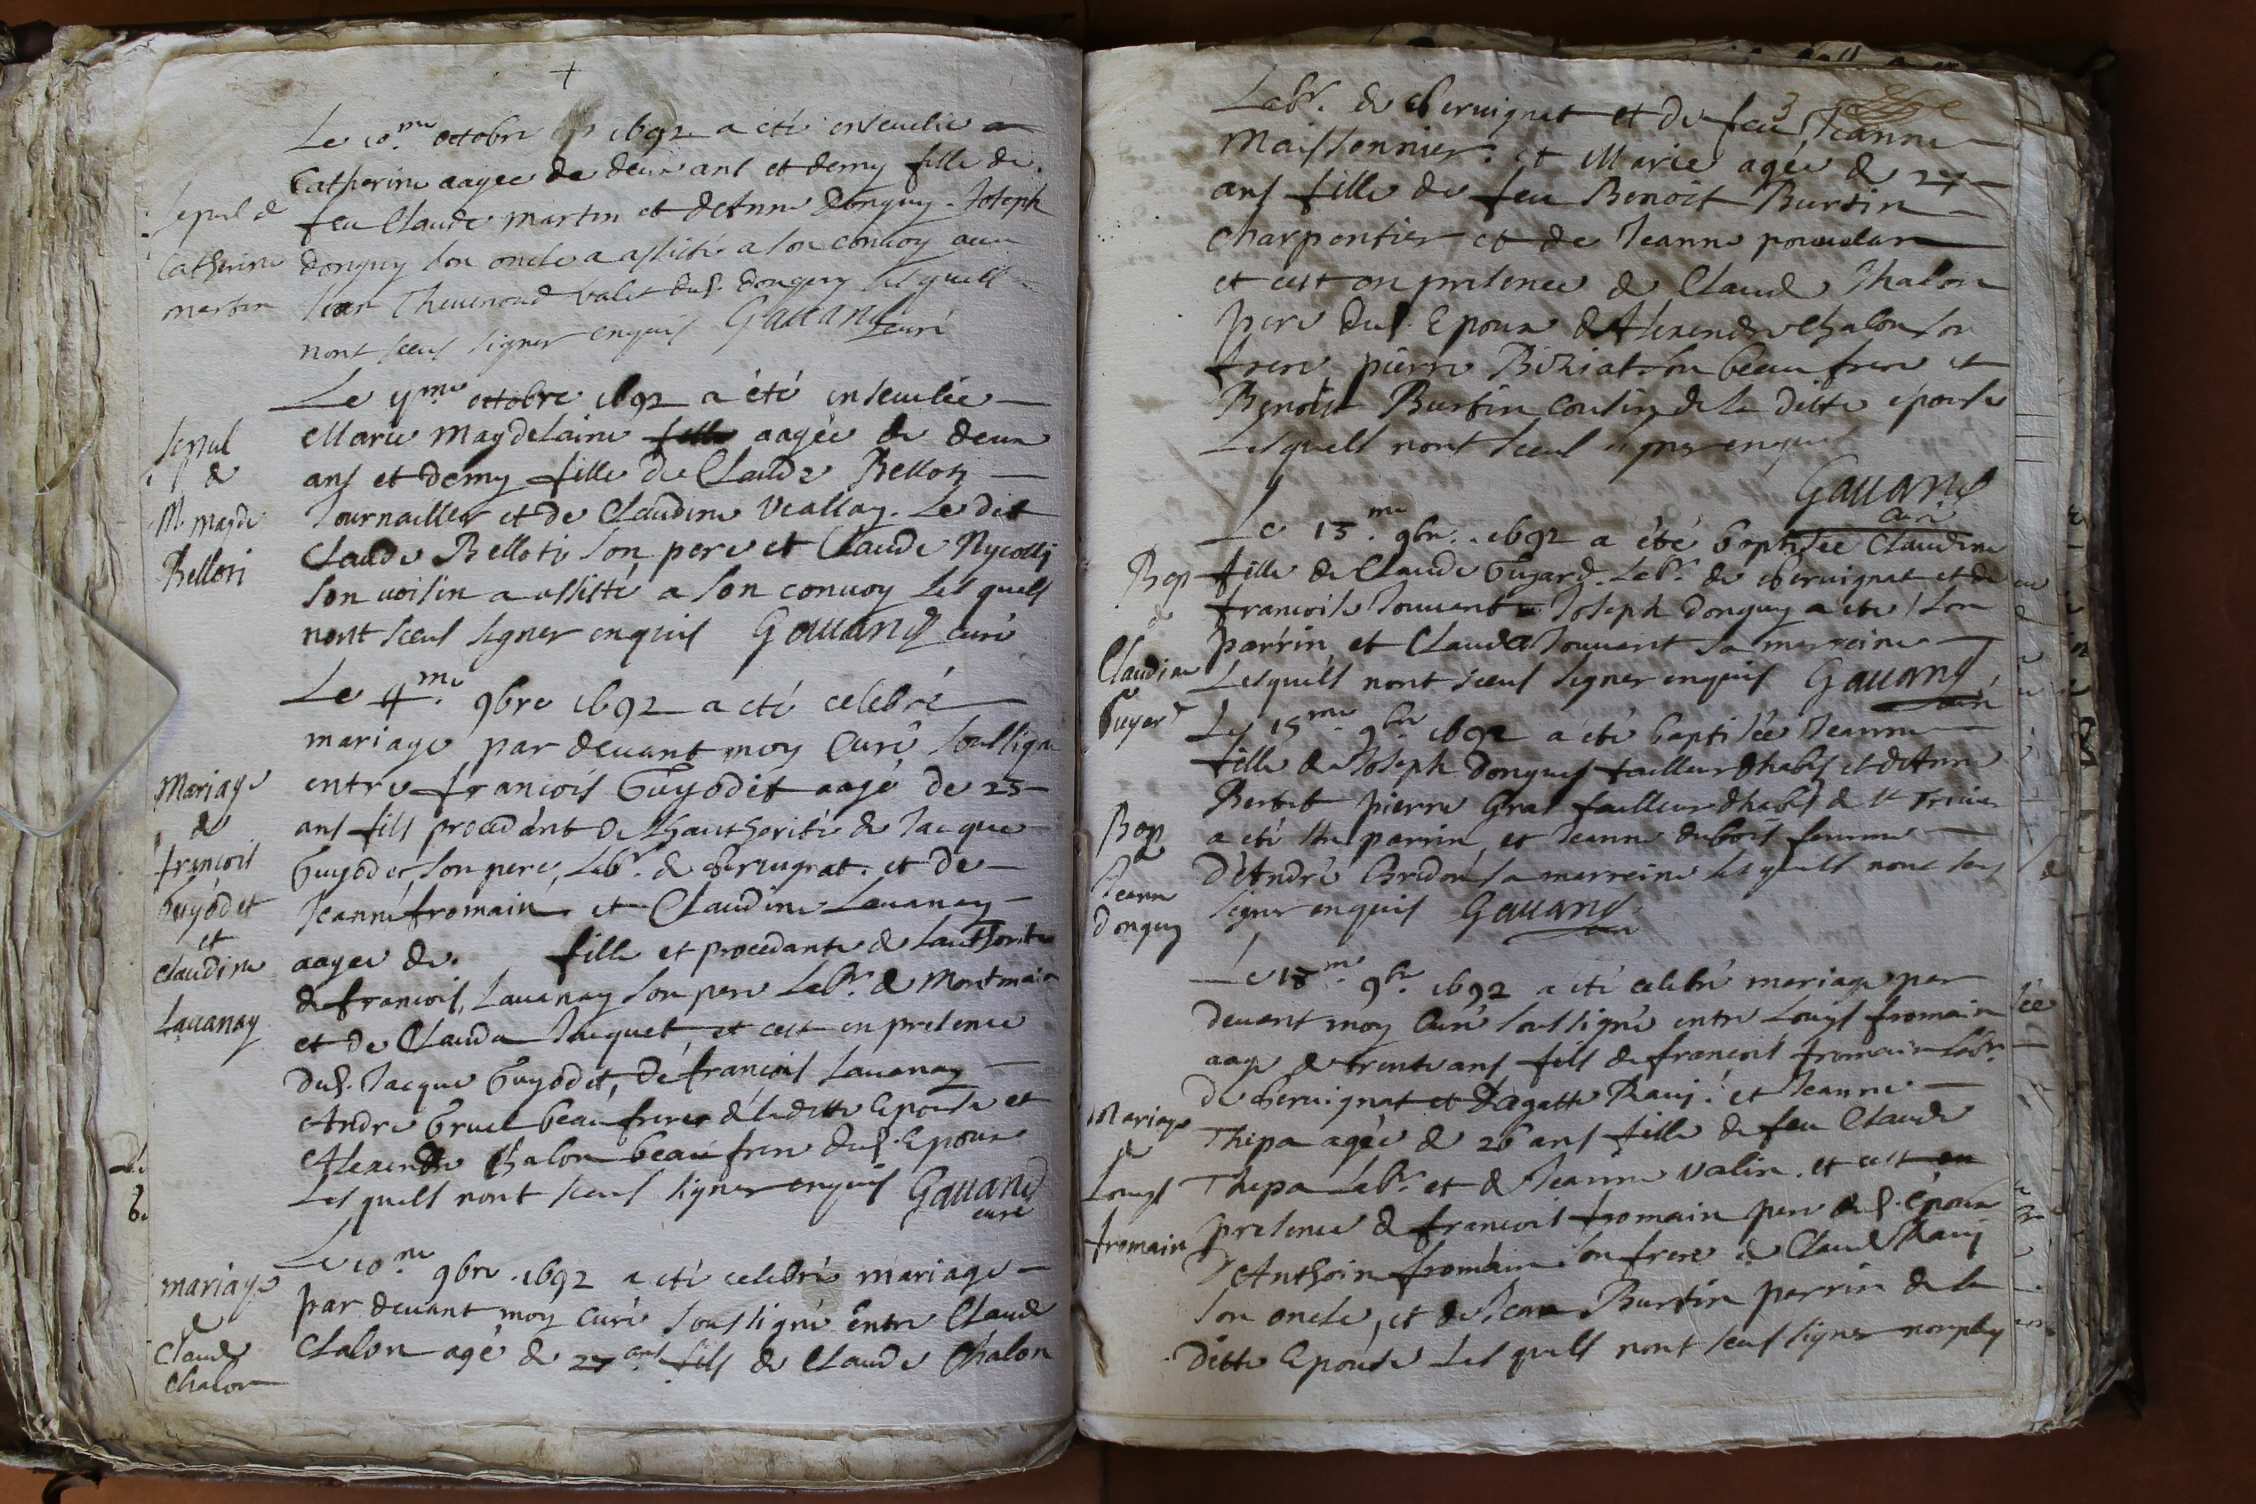 Le 10.me octobre 1692 a eté enseuelie
Catherine aagee de deux ans et demy fille de
feu Claude Martin et d'Anne Donguy. Joseph
donguy son oncle a assisté a son conuoy auec
Jean Theuenond valet dud. donguy lesquels
nont sceus signer enquis Gauand
curé
Sepul de
Catherine
martin
Le 11me octobre 1692 a été enseuelie
Marie Magdelaine aagée de deux
ans et demy fille de Claude Belloti
Journaillier et de Claudine Viallay. Le dit
Claude Belloti son pere et Claude Nycolly
son uoisin a assisté a son conuoy Les quels
nont sceus signer enquis Gauand curé
Sepul
de
M. magde
Bellori
Le 4.me 9bre 1692 a eté celebré
mariage par deuant moy Curé soussigné
entre francois Guyodet aagé de 25
ans fils procedant de Lhauthorité de Jacque
Guyodet, son pere, Labr. de cheruignat. et de
Jeanne fromain et Claudine Lauanay
aagee de. fille et procedante de Lauthorité
de francois, Lauanay son pere Labr. de Montmain
et de Clauda Jaquet, et cest en presence
dud. Jacque Guyodet, de francois Lauanay
Andre Gruel beau frere de la ditte Epouse et
Alexendre Chalon beau frere dud. Epoux
Lesquels nont sceus signer enquis Gauand
curé
Mariage
de
francois
Guyodet
et
claudine
Lauanay
Le 10.me 9bre .1692 a eté celebré mariage
par deuant moy curé soussigné entre Claude
Chalon agé de 27 ans fils de Claude Chalon
mariage
de
Claude
Chalon
Labr. de cheruignat et de feu Jeanne
Maissonnier. et Marie agée de 27
ans fille de feu Benoit Burtin
charpentier et de Jeanne
et cest en presence de Claude Chalon
pere dud. Epoux d'Alexendre Chalon son
frere pierre Biziat son beau frere et
Benoist Burtin cousin de la ditte épouse
Lesquels nont sceus signer enquis
Gauand
curé
Le 13.me 9bre. 1692 a été baptisée Claudine
fille de Claude Guyard. Labr. de cheruignat et de
francoise Jouuent Joseph donguy a ete son
parrin et Clauda Jouuent sa marreine
Lesquels nont sceus signer enquis Gauand
curé
Bap
de
Claudine
Guyard
Le 15me 9bre 1692 a été baptisée Jeanne
fille de Joseph donguy tailleur d'habit et d'Anne
Bertet pierre Gras tailleur d'habit de st Triuier
a eté son parrin et Jeanne dubost femme
d'André Bridon sa marreine lesquels nont sceus
signer enquis Gauand
curé
Bap
de
Jeanne
donguy
Le 18.me 9bre. 1692 a eté celebré mariage par
deuant moy curé soussigné entre Louys fromain
aagé de trente ans fils de francois fromain Labr.
de cheruignat et d'agatte Rauy. et Jeanne
Thipa agée de 26 ans fille de feu Claude
Thipa Labr. et de Jeanne Valin. et cest en
presence de francois fromain pere dud. Epoux
d'Anthoine fromain son frere de Claude Rauy
son oncle, et de Jean Burtin parrin de la
ditte Epouse Lesquels nont sceus signer
Mariage
de
Louys
fromain